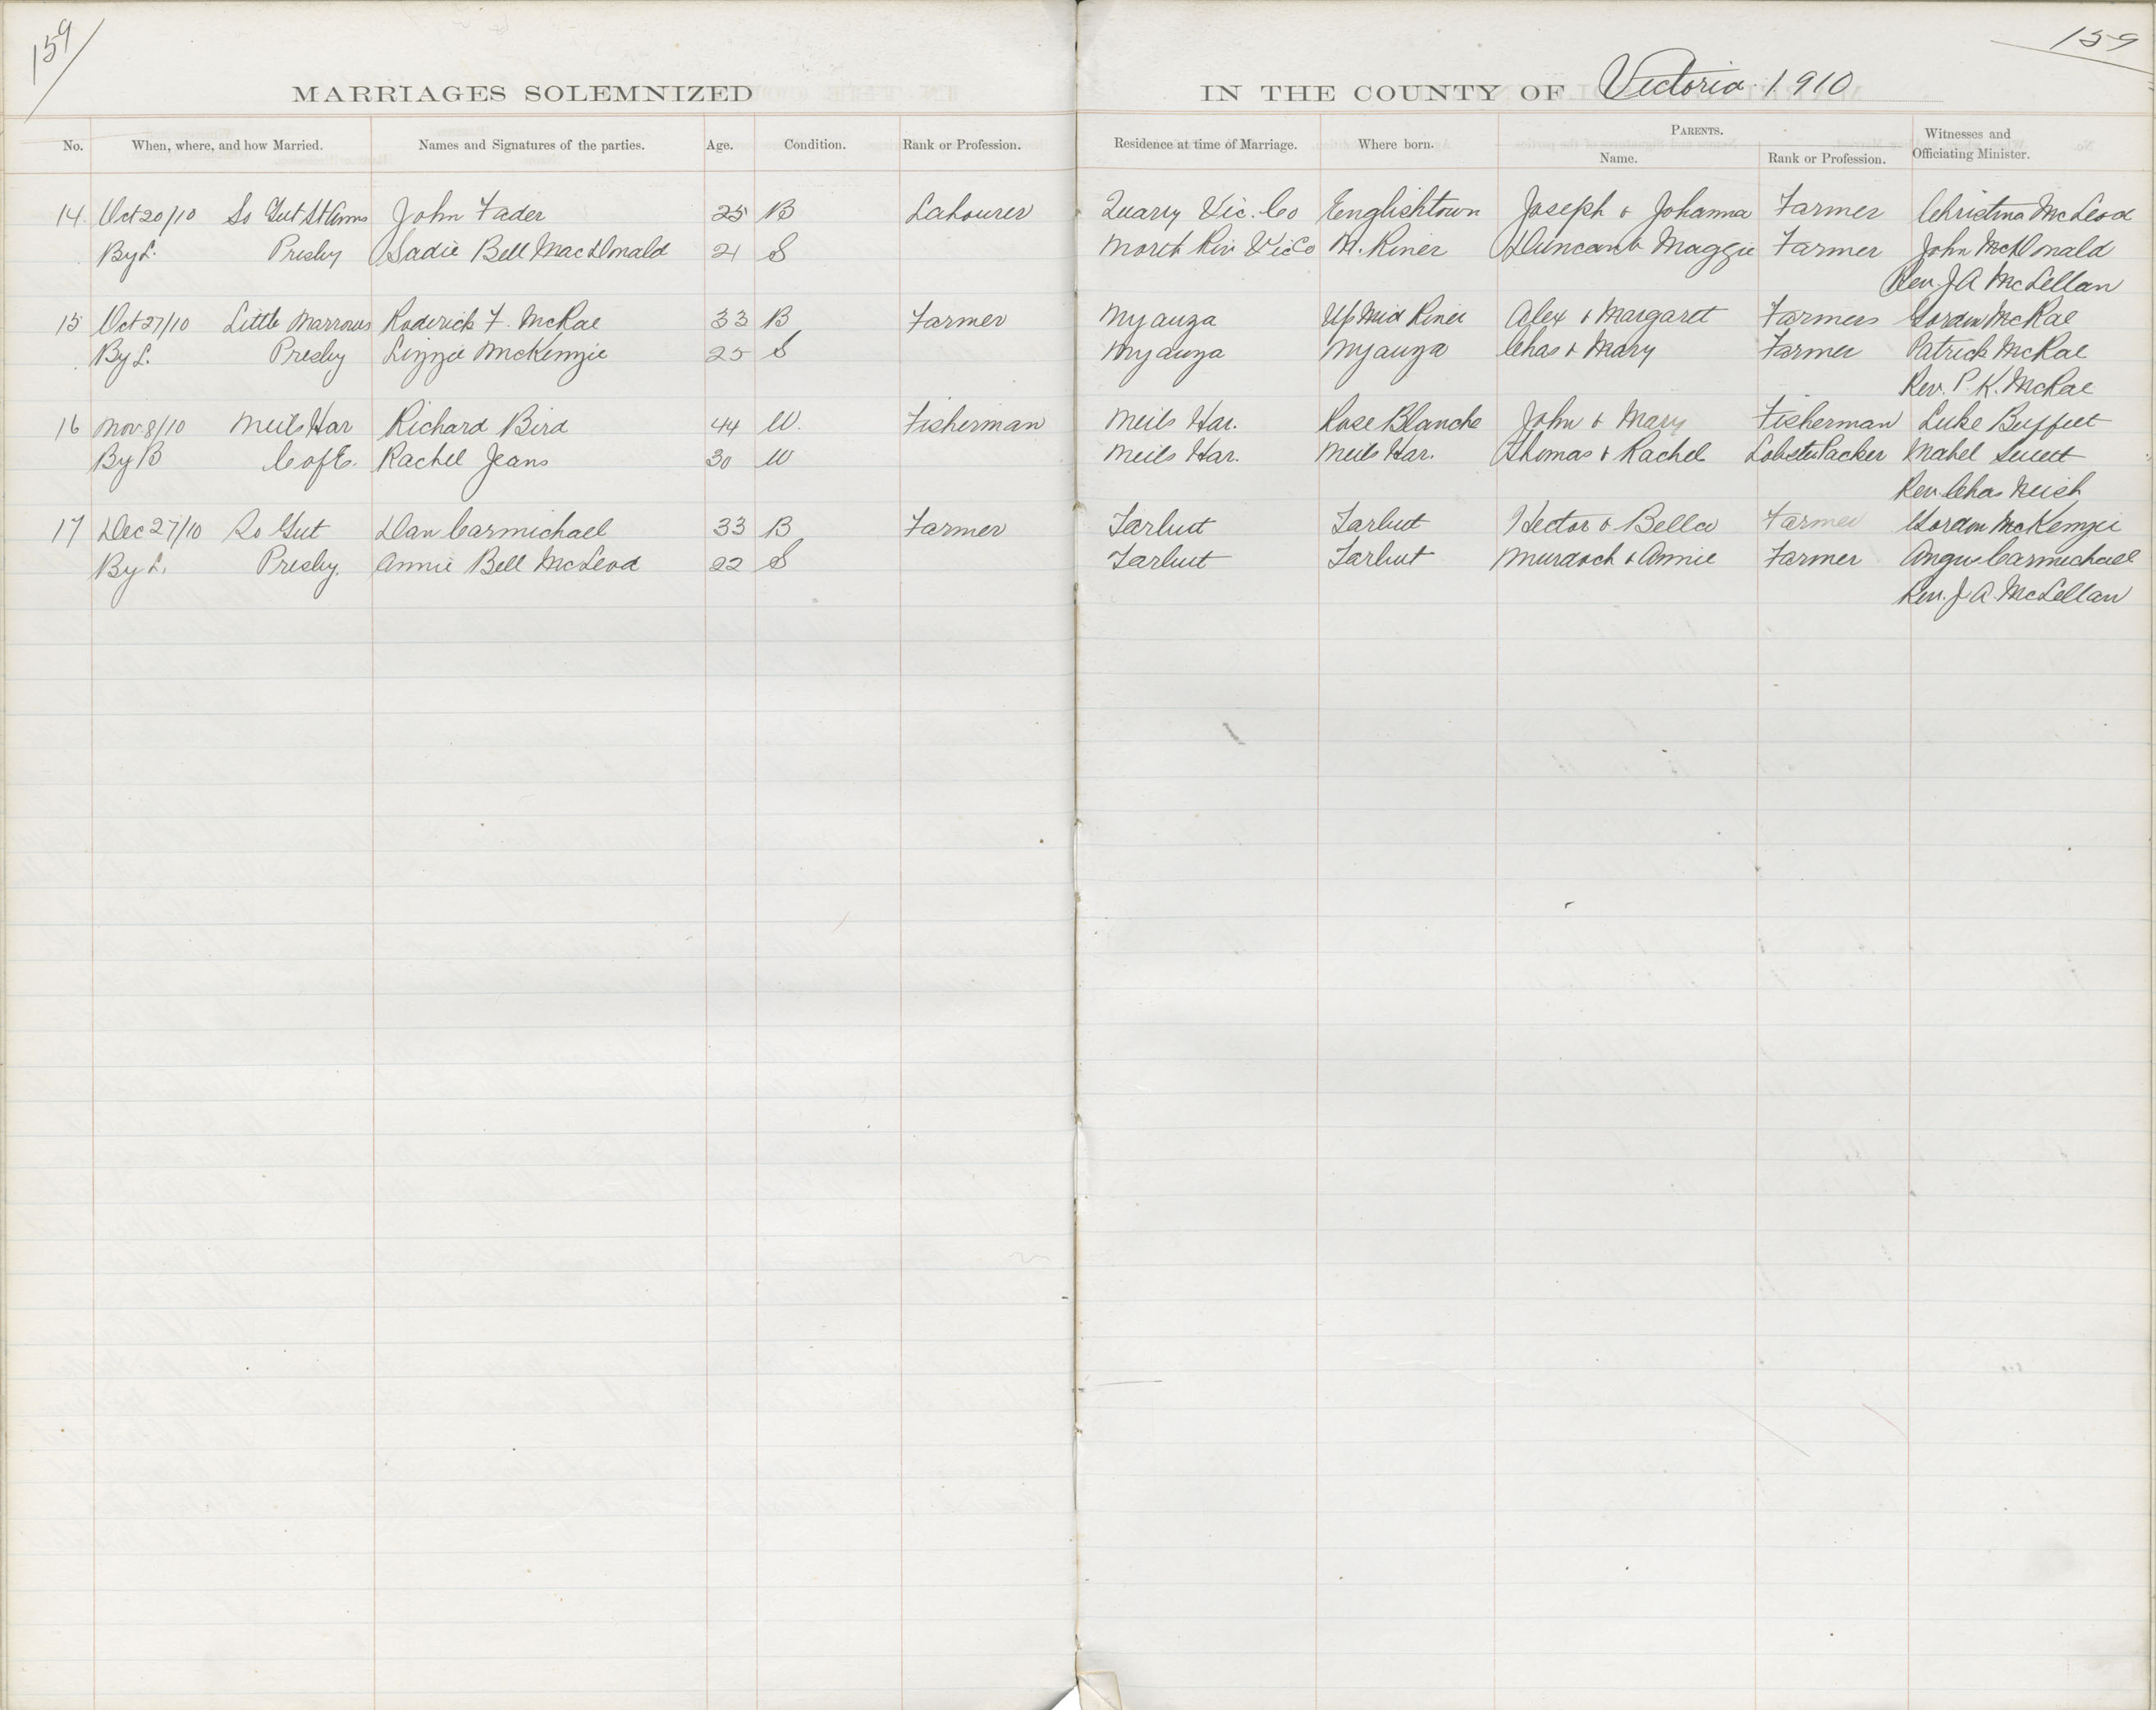 159
159
MARRIAGES SOLEMNIZED IN THE COUNTY OF Victoria 1910
No. When, where, and how Married. Names and Signatures of the parties. Age. Condition. Rank or Profession. Residence at time of Marriage. Where born. PARENTS. Name. Rank or Profession. Witnesses and Officiating Minister.
14 Oct 20/10 So Gut St Anns John Fader 25 B Labourer Quarry Vic. Co Englishtown Joseph & Johanna Farmer Christina McLeod
By L. Presby Sadie Bell MacDonald 21 S North Riv Vic Co N. River Duncan & Maggie Farmer John McDonald
Rev. J A McLellan
15 Oct 27/10 Little Narrows Roderick F. McRae 33 B Farmer Nyanza Up Mid River Alex & Margaret Farmers Gordon McRae
By L. Presby Lizzie McKenzie 25 S Nyanza Nyanza Chas & Mary Farmer Patrick McRae
Rev. P. K. McRae
16 Nov 8/10 Neils Har Richard Bird 44 W. Fisherman Neils Har. Rose Blanche John & Mary Fisherman Luke Buffett
By B C of E. Rachel Jeans 30 W Neils Har. Neils Har. Thomas & Rachel Lobster Packer Mabel Sweet
Rev. Chas Neish
17 Dec 27/10 So Gut Dan Carmichael 33 B Farmer Tarbut Tarbut Hector & Bella Farmer Gordon McKenzie
By L. Presby. Annie Bell McLeod 22 S Tarbut Tarbut Murdoch & Annie Farmer Angus Carmichael
Rev. J. A. McLellan